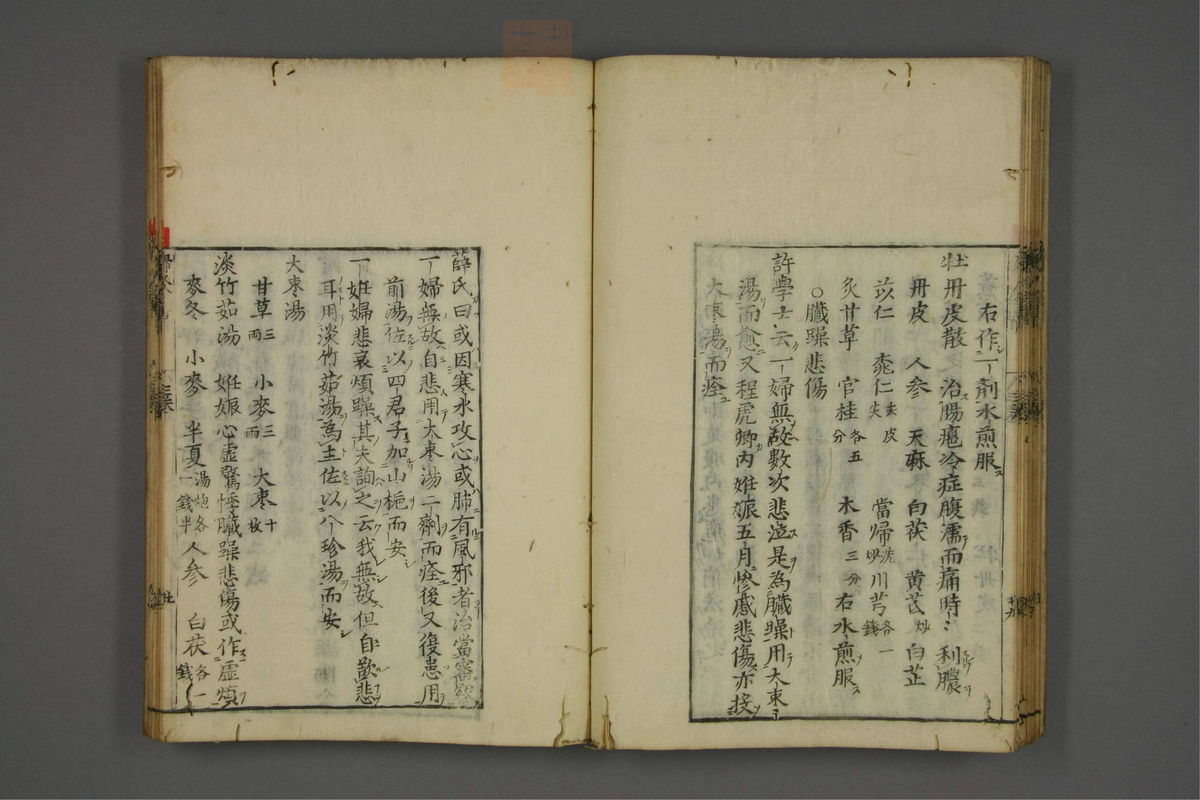 右作一剤水煎服
牡丹皮散 治腸癰冷症腹濡而痛時〻利膿
丹皮 人参 天麻 白茯 黄芪炒 白芷
苡仁 桃仁去皮尖 當歸洗炒 川芎各一錢
炙甘草 官桂各五分 木香三分 右水煎服
○臓躁悲傷
許學士云一婦無故數次悲泣是為臓躁用大棗
湯而愈又程虎卿内姙娠五月慘慼悲傷亦投
大棗湯而痊
薛氏曰或因寒水攻心或肺有風邪者治當審察
一婦無故自悲用大棗湯二劑而痊後又復患用
前湯佐以四君子加山梔而安
一姙婦悲哀煩躁其夫詢之云我無故但自歎悲
耳用淡竹茹湯為主佐以八珍湯而安
大棗湯
甘草三両 小麥三両 大棗十枚
淡竹茹湯 姙娠心虚驚悸臓躁悲傷或作虚煩
麥冬 小麥 半夏湯炮各一錢半 人参 白茯各一錢